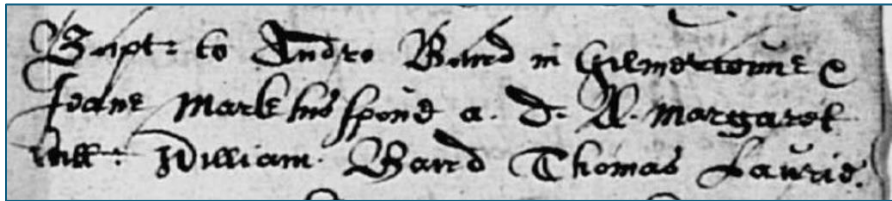 Bapt: to Andro Baird in Gilmertoune &
Jeane Mark his spous a. d. N. Margaret
witt: William Baird Thomas Laurie.